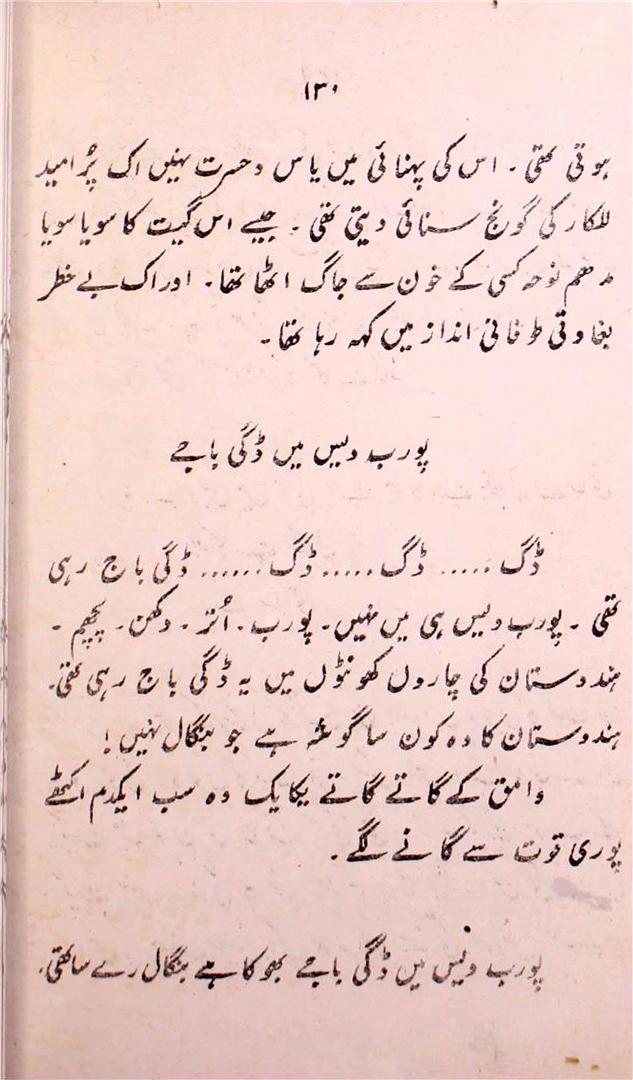 ۱۳۰
ہوتی تھی ۔ اس کی پہنائی میں یاس و حسرت نہیں اک پُر امید
للکار کی گونج سنائی دیتی تھی ۔ جیسے اس گیت کا سویا سویا
مدھم نوحہ کسی کے خون سے جاگ اٹھا تھا ۔ اور اک بے خطر
بغاوتی طوفانی انداز میں کہہ رہا تھا ۔
پورب دیس میں ڈگی باجے
ڈگ ..... ڈگ ..... ڈگ ...... ڈگی باج رہی
تھی ۔ پورب دیس ہی میں نہیں ۔ پورب ۔ اُتر ۔ دکھن ۔ پچھم ۔
ہندوستان کی چاروں کھونٹوں میں یہ ڈگی باج رہی تھی ۔
ہندوستان کا وہ کون سا گوشہ ہے جو بنگال نہیں !
وامق کے گاتے گاتے یکایک وہ سب ایکدم اکٹھے
پوری قوت سے گانے لگے ۔
پورب دیس میں ڈگی باجے بھوکا ہے بنگال رے ساتھی ۔